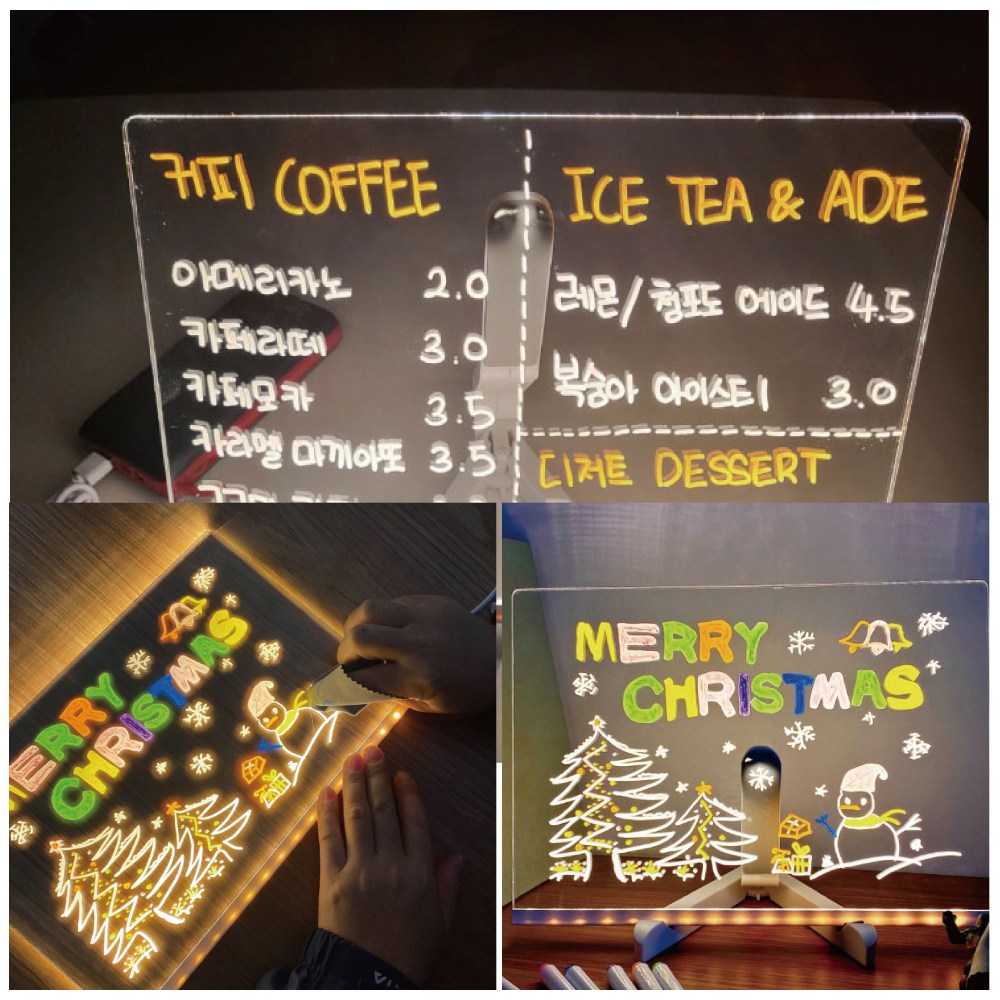 커피 COFFEE
아메리카노 2.0
카페라떼 3.0
카페모카 3.5
카라멜 마끼아또 3.5
ICE TEA & ADE
레몬/청포도 에이드 4.5
복숭아 아이스티 3.0
디저트 DESSERT
MERRY
CHRISTMAS
MERRY
CHRISTMAS